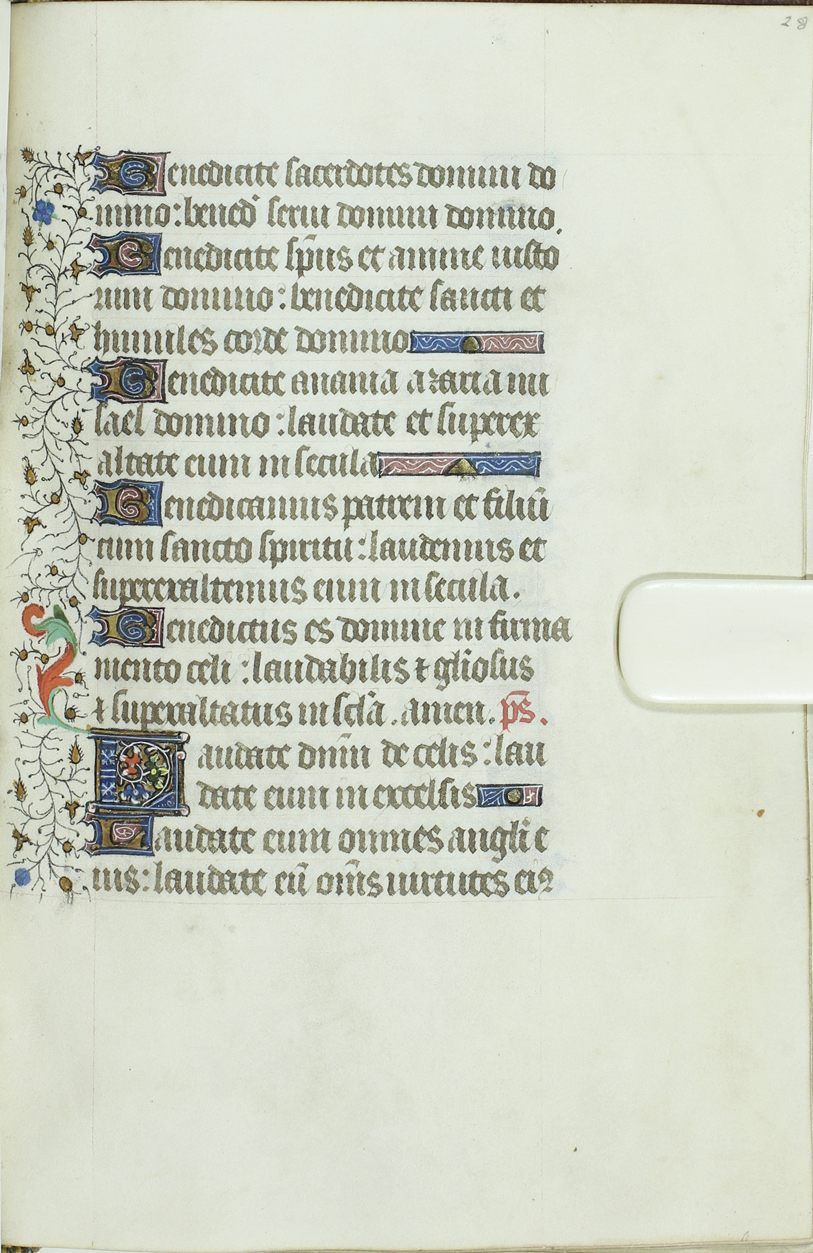 28
Benedicite sacerdotes domini do
mino: bened̉ serui domini domino.
Benedicite sp̄us et anime iusto
rum domino: benedicite sancti et
humiles corde domino
Benedicite anania azaria mi
sael domino: laudate et superex
altate eum in secula
Benedicamus patrem et filiū
cum sancto spiritu: laudemus et
superexaltemus eum in secula.
Benedictus es domine in firma
mento celi: laudabilis ⁊ gl̄iosus
⁊ superaltatus in scl̄a. amen. ps̄.
Laudate dn̄m de celis: lau
date eum in excelsis
Laudate eum omnes angl̄i e
ius: laudate eū om̄s uirtutes eiꝰ